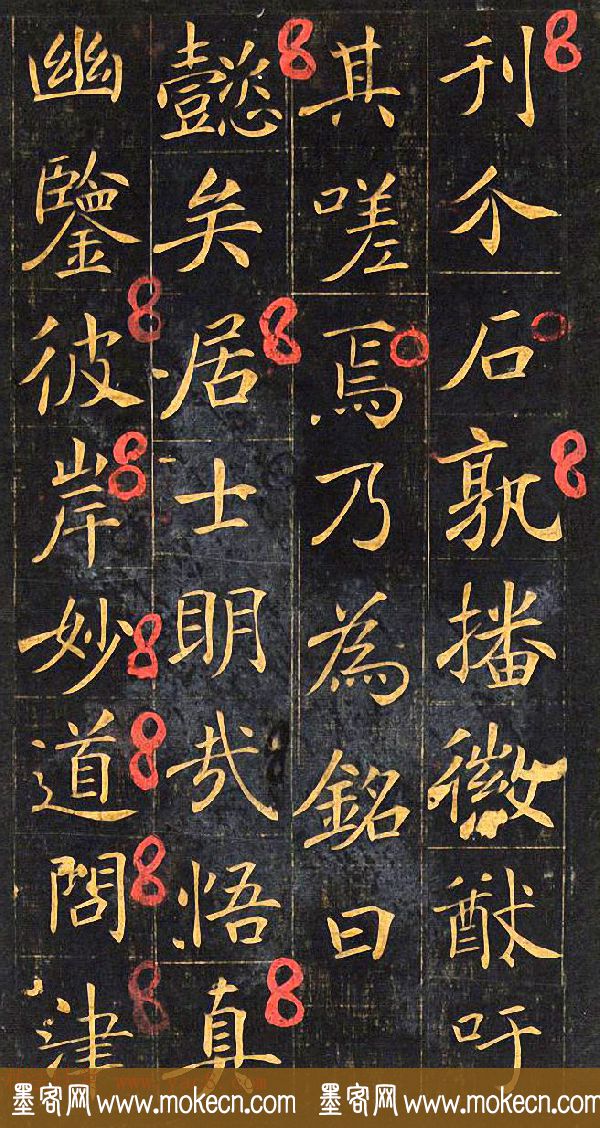 刊介石孰播徽猷吁
其嗟焉乃為銘曰
懿矣居士明哉悟真
幽鑒彼岸妙道問津
墨客网 www.mokecn.com 墨客网 www.mokecn.com